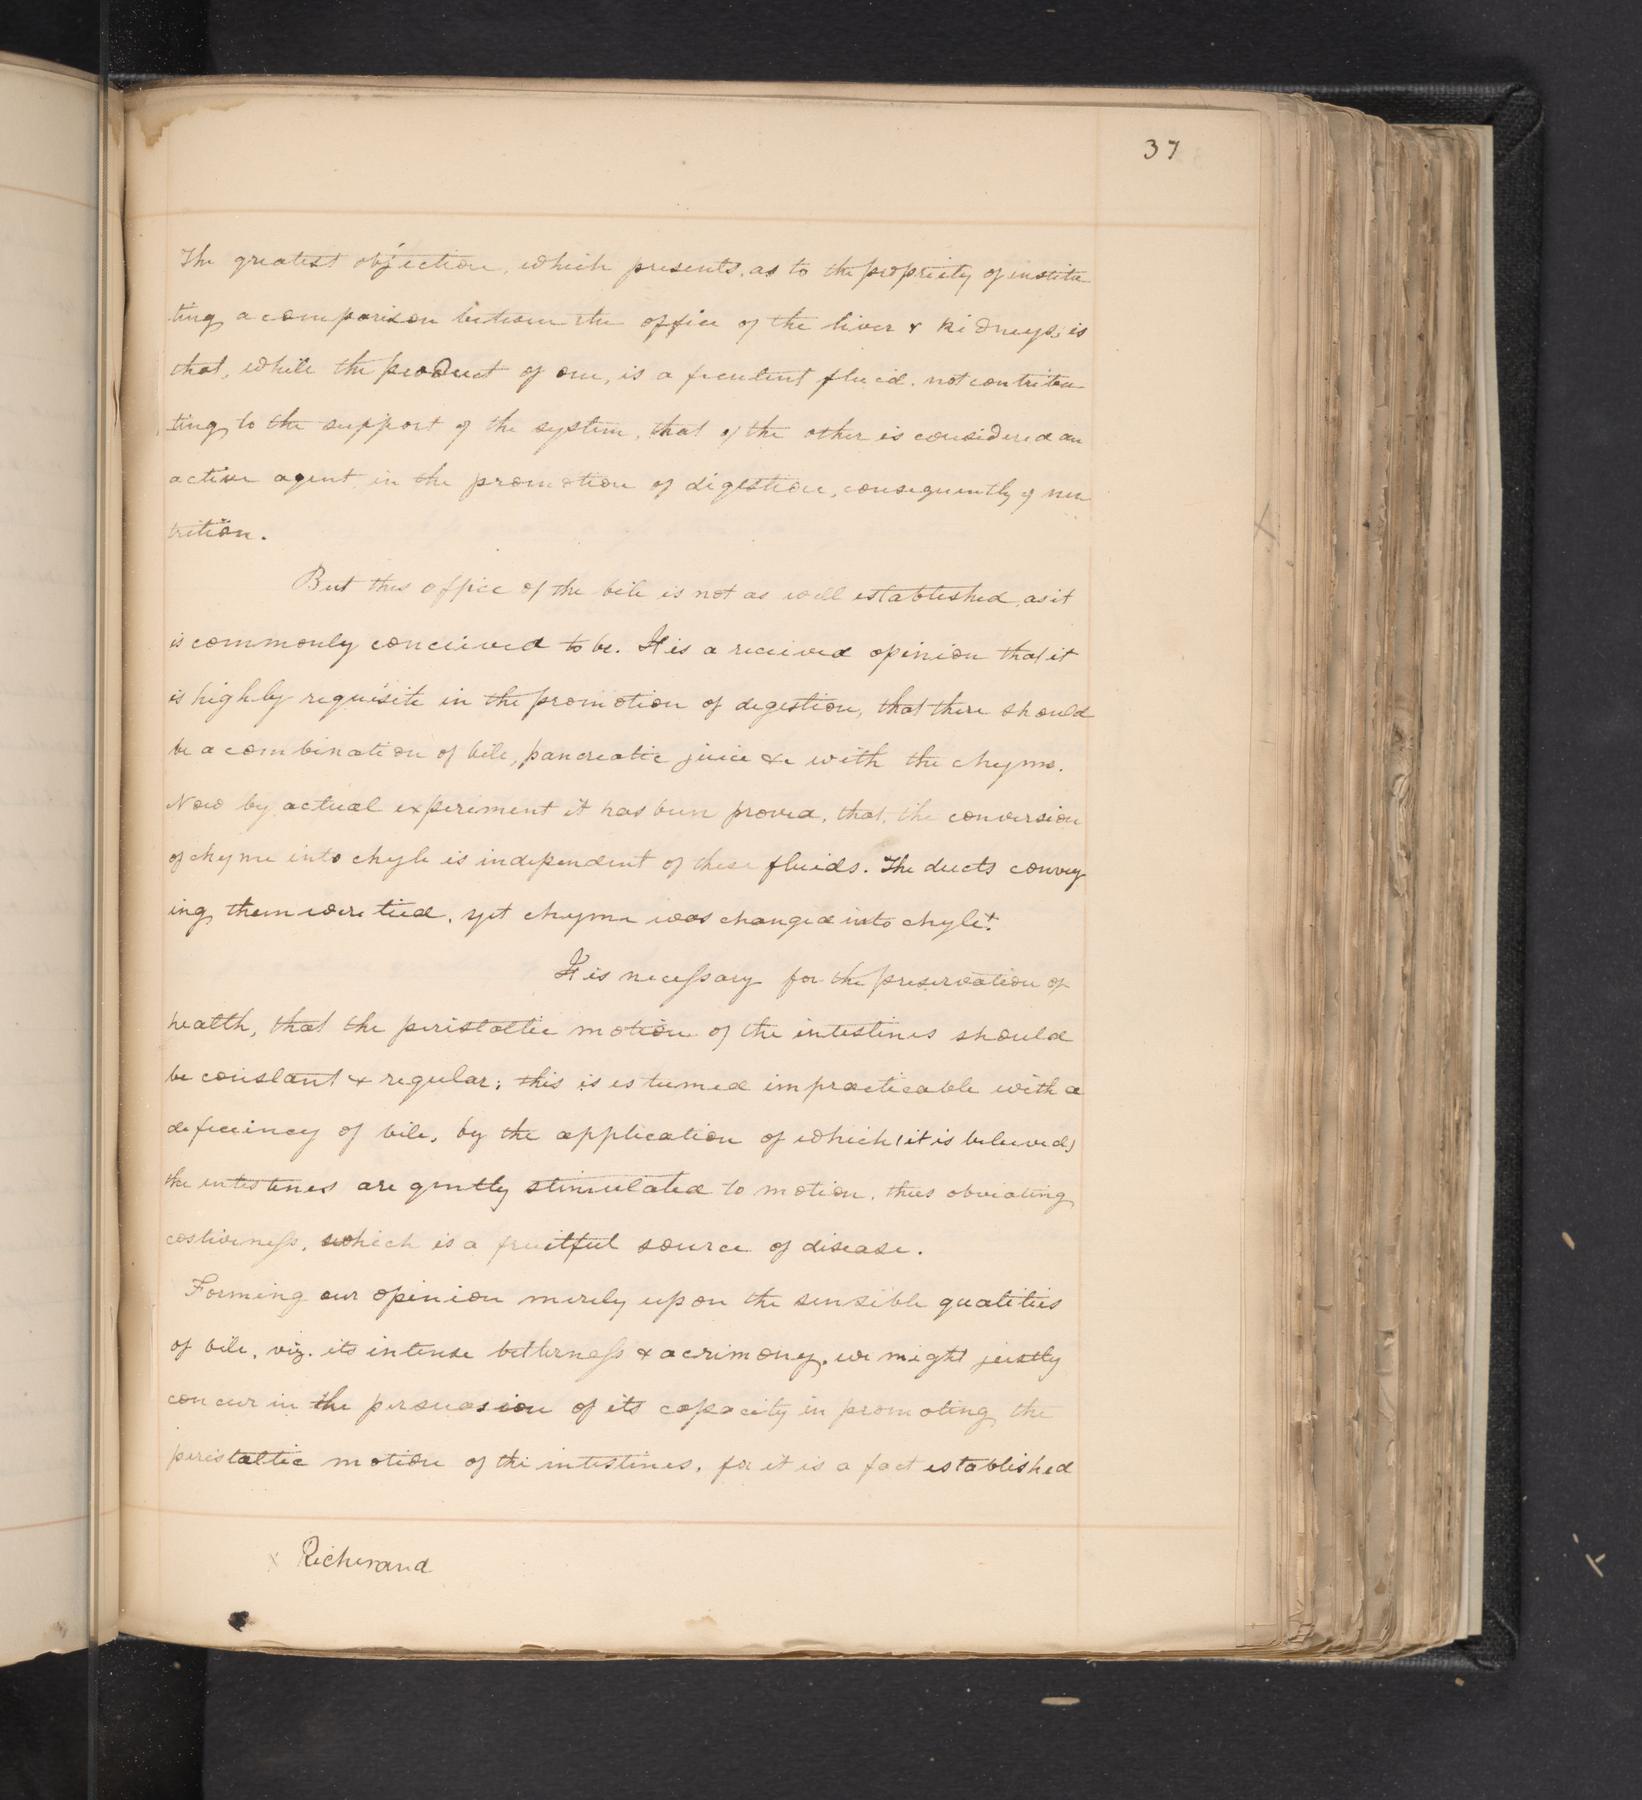 37
The greatest objection, which presents, as to the propriety of institu
ting a comparison between the office of the liver & kidneys, is
that, while the product of one, is a feculent fluid, not contribu
ting to the support of the system, that of the other is considered an
active agent in the promotion of digestion, consequently of nu
trition.
But this office of the bile is not as well established, as it
is commonly conceived to be. It is a received opinion that it
is highly requisite in the promotion of digestion, that there should
be a combination of bile, pancreatic juice &c with the chyme.
Now by actual experiment it has been proved, that, the conversion
of chyme into chyle is independent of these fluids. The ducts convey
ing them were tied, yet chyme was changed into chyle.+
It is necessary for the preservation of
health, that the peristaltic motion of the intestines should
be constant & regular; this is esteemed impracticable with a
deficiency of bile, by the application of which (it is believed)
the intestines are gently stimulated to motion, thus obviating
costiveness, which is a fruitful source of disease.
Forming our opinion merely upon the sensible qualities
of bile, viz. its intense bitterness & acrimony, we might justly
concur in the persuasion of its capacity in promoting the
peristaltic motion of the intestines, for it is a fact established
x Richerand